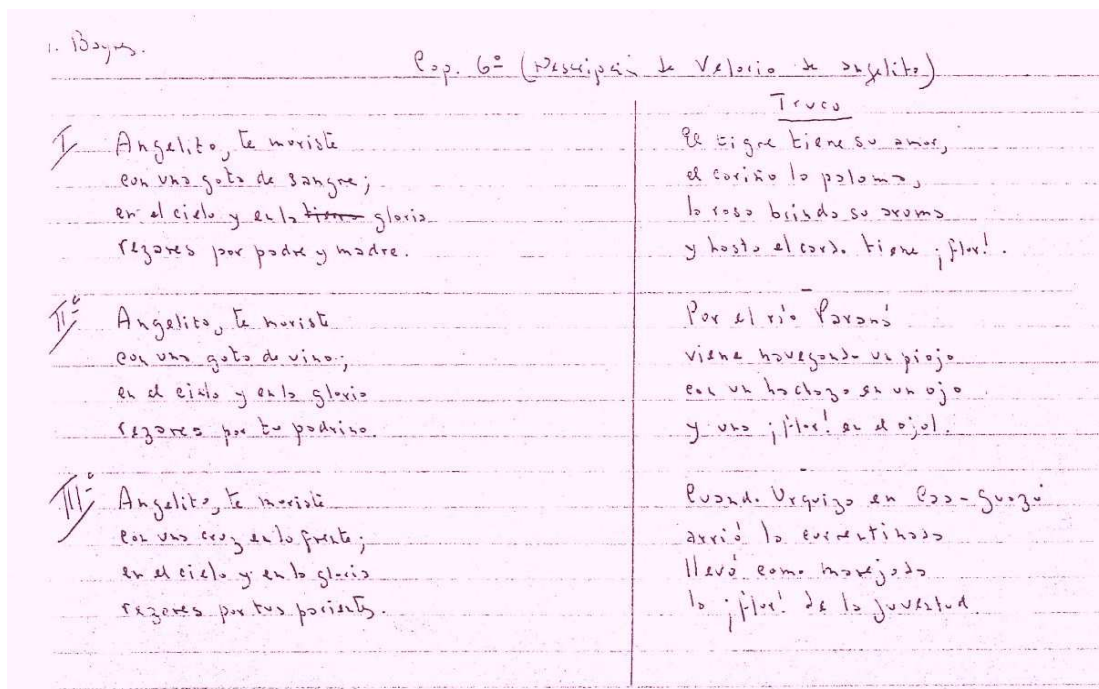 1. Bayres.
Cap. 6º (Descripción de Velorio de angelito)
I Angelito, te moriste
con una gota de sangre;
en el cielo y en la tierra gloria
rezares por padre y madre.
IIº Angelito, te moriste
con una gota de vino;
en el cielo y en la gloria
rezares por tu padrino.
IIIº Angelito, te moriste
con una cruz en la frente;
en el cielo y en la gloria
rezares por tus parientes.
Truco
El tigre tiene su amor,
el cariño la paloma,
la rosa brinda su aroma
y hasta el cardo tiene ¡flor!.
Por el río Paraná
viene navegando un piojo
con un hachazo en un ojo
y una ¡flor! en el ojal.
Cuando Urquiza en Caa-Guazú
arrió la correntinada
llevó como marejada
la ¡flor! de la juventud